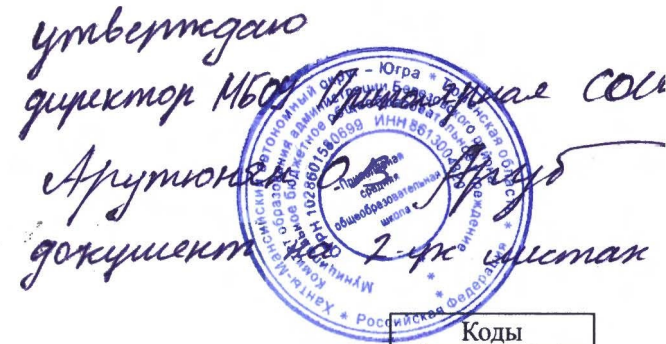 утверждаю
директор МБОУ Приполярная СОШ
Арутюнян О.
документ на 2-ух листах
Ханты-Мансийский автономный округ – Югра * Тюменская область * Российская Федерация *
Комитет образования администрации Березовского района
Муниципальное бюджетное общеобразовательное учреждение
ОГРН 1028601580699 ИНН
"Приполярная
средняя
общеобразовательная
школа"
Коды